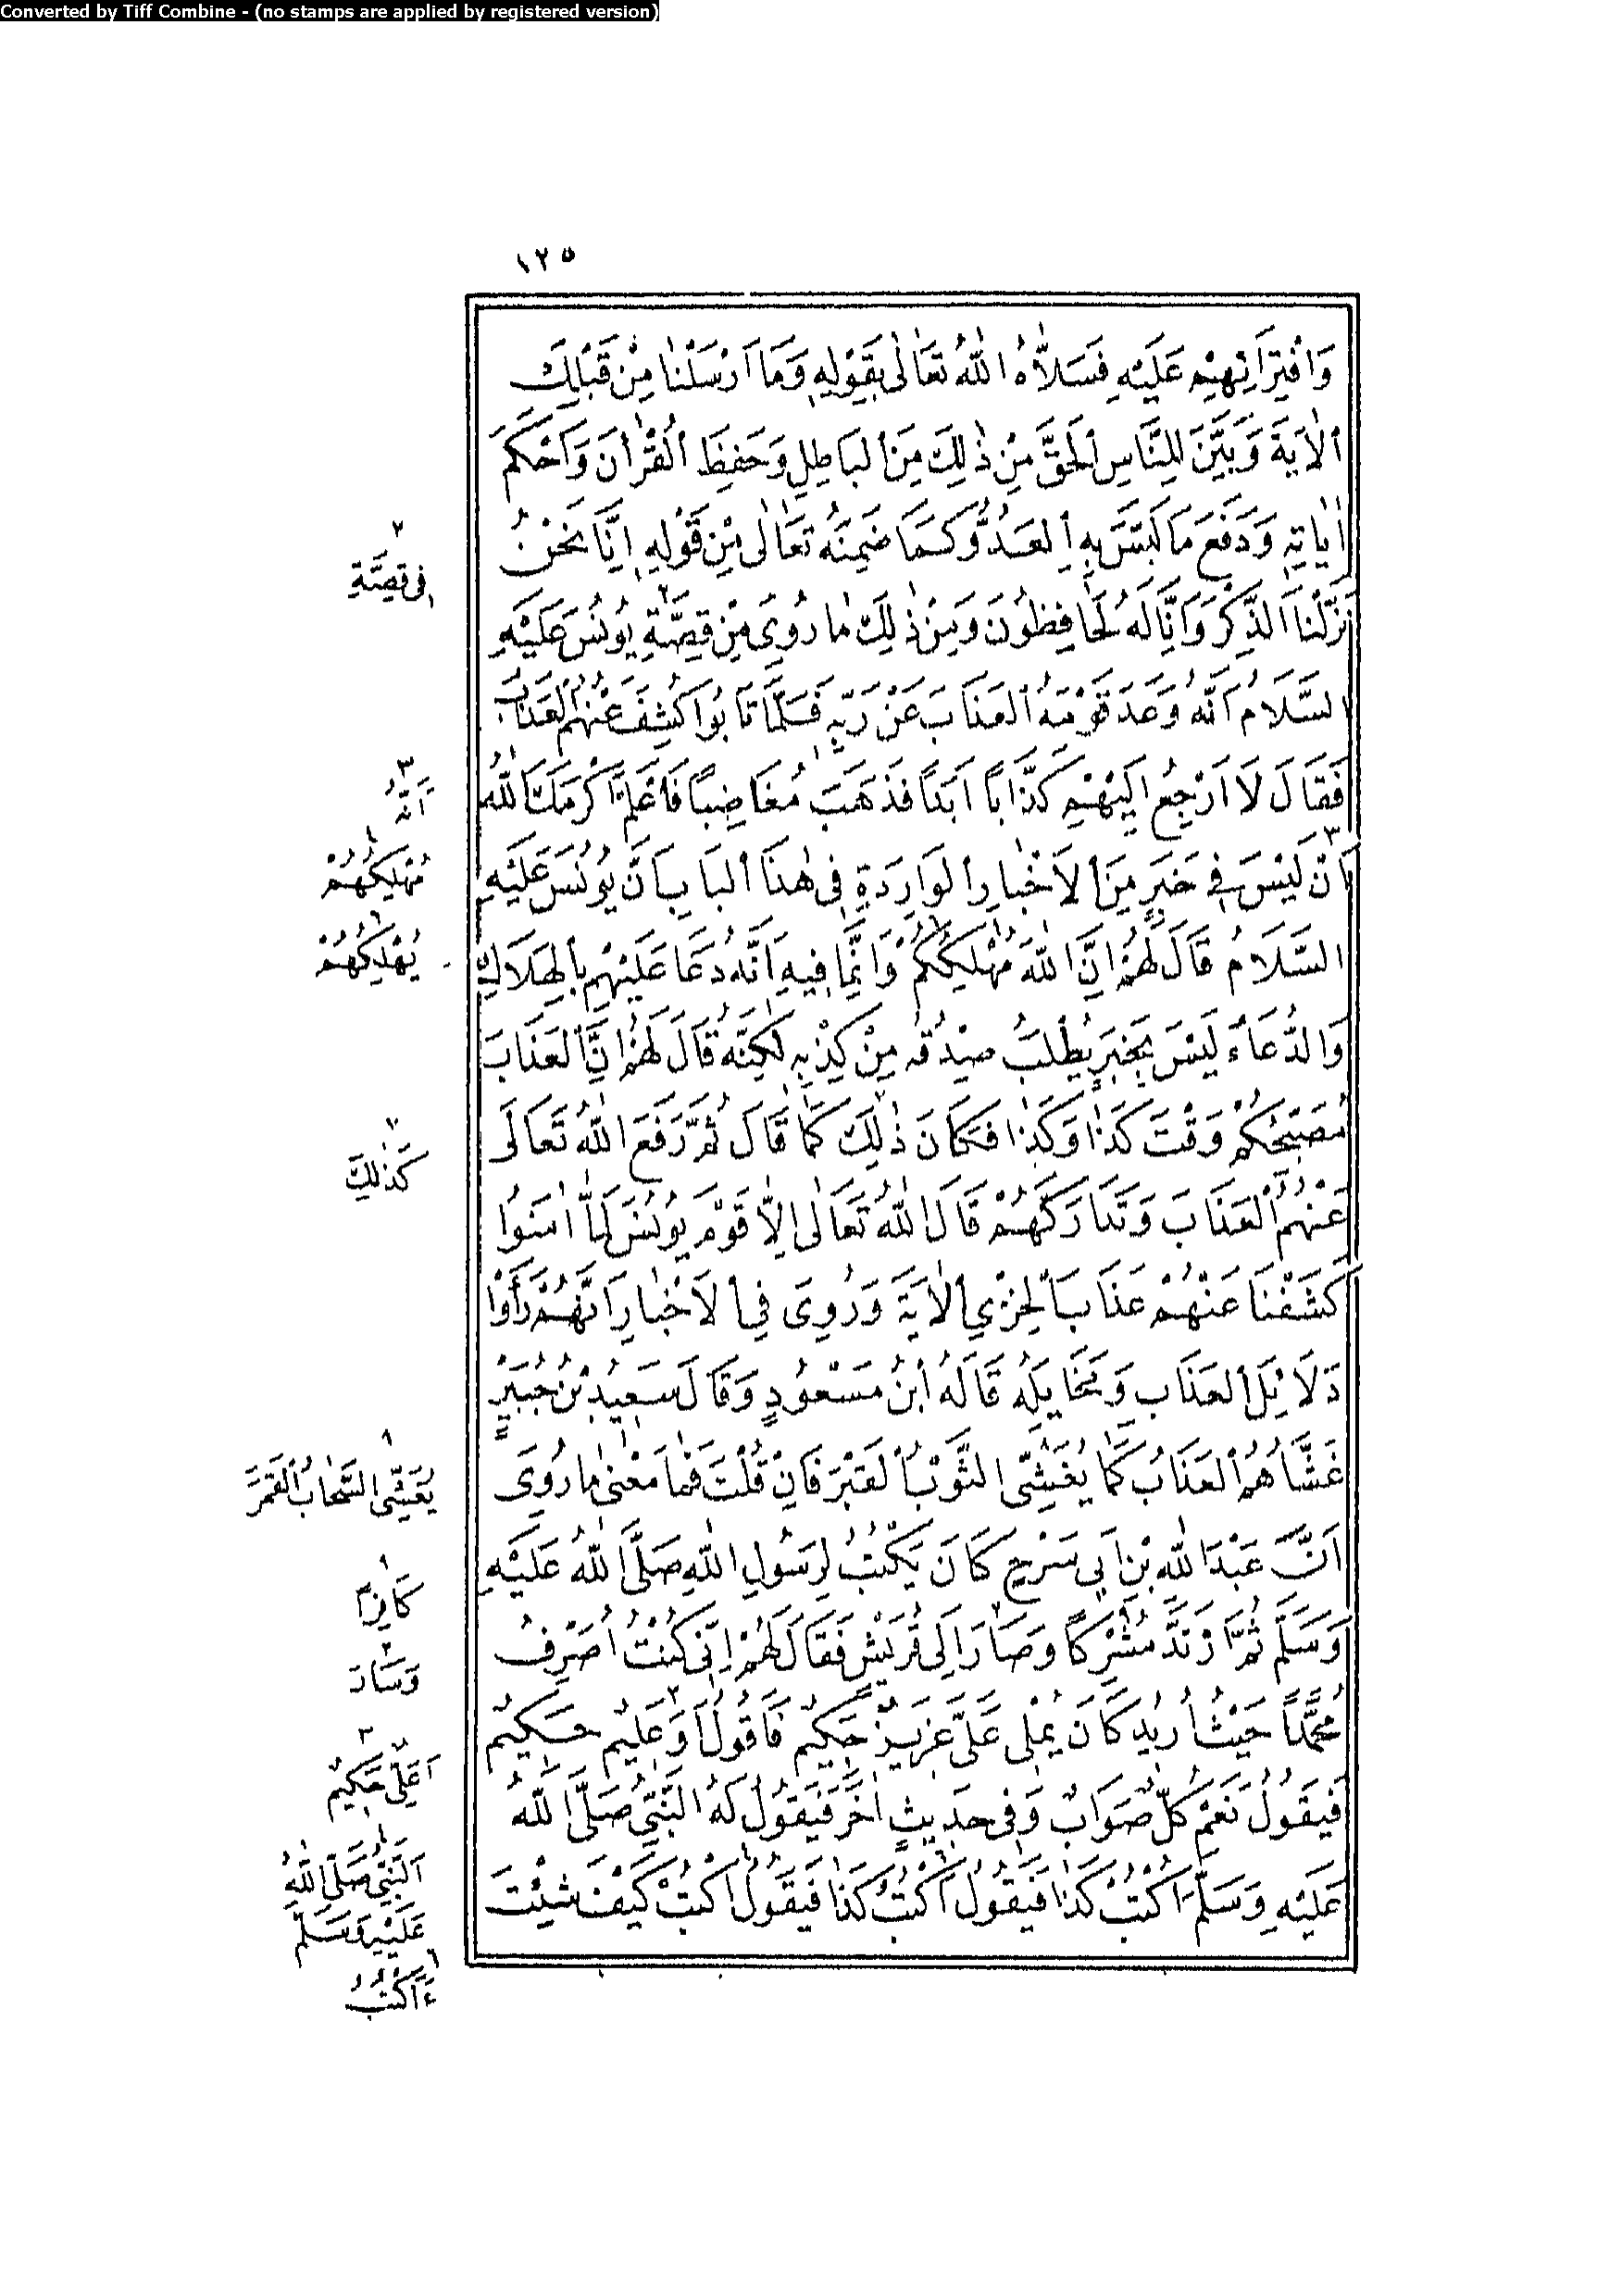 Converted by Tiff Combine - (no stamps are applied by registered version)
١٢٥
وَافْتِرَائِهِمْ عَلَيْهِ فَسَلَّاهُ اللّٰهُ تَعَالٰى بِقَوْلِهِ وَمَا اَرْسَلْنَا مِنْ قَبْلِكَ
اْلاٰيَةَ وَبَيَّنَ لِلنَّاسِ اْلحَقَّ مِنْ ذٰلِكَ مِنَ اْلبَاطِلِ وَحَفِظَ اْلقُرْاٰنَ وَاَحْكَمَ
اٰيَاتِهِ وَدَفَعَ مَا لَبَّسَ بِهِ اْلعَدُوُّ كَمَا ضَمِنَهُ تَعَالٰى مِنْ قَوْلِهِ اِنَّا نَحْنُ
نَزَّلْنَا الذِّكْرَ وَاِنَّا لَهُ لَحَافِظُونَ وَمِنْ ذٰلِكَ مَا رُوِىَ مِنْ قِصَّةِ يُونُسَ عَلَيْهِ
السَّلَامُ اَنَّهُ وَعَدَ قَوْمَهُ اْلعَذَابَ عَنْ رَبِّهِ فَلَمَّا تَابُوا كُشِفَ عَنْهُمُ اْلعَذَابُ
فَقَالَ لَا اَرْجِعُ اِلَيْهِمْ كَذَّابًا اَبَدًا فَذَهَبَ مُغَاضِبًا فَاعْلَمْ اَكْرَمَكَ اللّٰهُ
اَنْ لَيْسَ فِى خَبَرٍ مِنَ اْلاَخْبَارِ اْلوَارِدَةِ فِى هٰذَا اْلبَابِ اَنَّ يُونُسَ عَلَيْهِ
السَّلَامُ قَالَ لَهُمْ اِنَّ اللّٰهَ مُهْلِكُكُمْ وَاِنَّمَا فِيهِ اَنَّهُ دَعَا عَلَيْهِمْ بِاْلهَلَاكِ
وَالدُّعَاءُ لَيْسَ بِخَبَرٍ يُطْلَبُ صِدْقُهُ مِنْ كِذْبِهِ لٰكِنَّهُ قَالَ لَهُمْ اِنَّ اْلعَذَابَ
مُصَبِّحُكُمْ وَقْتَ كَذَا وَكَذَا فَكَانَ ذٰلِكَ كَمَا قَالَ ثُمَّ رَفَعَ اللّٰهُ تَعَالَى
عَنْهُمُ اْلعَذَابَ وَتَدَارَكَهُمْ قَالَ اللّٰهُ تَعَالٰى اِلاَّ قَوْمَ يُونُسَ لَمَّا اٰمَنُوا
كَشَفْنَا عَنْهُمْ عَذَابَ اْلخِزْيِ اْلاٰيَةَ وَرُوِىَ فِى اْلاَخْبَارِ اَنَّهُمْ رَأَوْا
دَلَائِلَ اْلعَذَابِ وَمَخَايِلَهُ قَالَهُ ابْنُ مَسْعُودٍ وَقَالَ سَعِيدُ بْنُ جُبَيْرٍ
غَشَّاهُمُ اْلعَذَابُ كَمَا يُغَشِّى الثَّوْبُ اْلقَبْرَ فَاِنْ قُلْتَ فَمَا مَعْنٰى مَا رُوِىَ
اَنَّ عَبْدَ اللّٰهِ بْنَ اَبِى سَرْحٍ كَانَ يَكْتُبُ لِرَسُولِ اللّٰهِ صَلَّى اللّٰهُ عَلَيْهِ
وَسَلَّمَ ثُمَّ ارْتَدَّ مُشْرِكًا وَصَارَ اِلَى قُرَيْشٍ فَقَالَ لَهُمْ اِنِّى كُنْتُ اُصَرِّفُ
مُحَمَّدًا حَيْثُ اُرِيدُ كَانَ يُمْلِى عَلَىَّ عَزِيزٌ حَكِيمٌ فَاَقُولُ اَوْ عَلِيمٌ حَكِيمٌ
فَيَقُولُ نَعَمْ كُلٌّ صَوَابٌ وَفِى حَدِيثٍ اٰخَرَ فَيَقُولُ لَهُ النَّبِىُّ صَلَّى اللّٰهُ
عَلَيْهِ وَسَلَّمَ اكْتُبْ كَذَا فَيَقُولُ اَكْتُبُ كَذَا فَيَقُولُ اكْتُبْ كَيْفَ شِئْتَ
٢
فِى قِصَّةِ
٣
اَنَّهُ
مُهْلِكُهُمْ
يُهْلِكُهُمْ
كَذٰلِكَ
يُغَشِّى السَّحَابُ اْلقَمَرَ
كَافِرًا
وَسَارَ
٣
اَعَلِىٌّ حَكِيمٌ
اَلنَّبِىُّ صَلَّى اللّٰهُ
عَلَيْهِ وَسَلَّمَ
ءَاَكْتُبُ